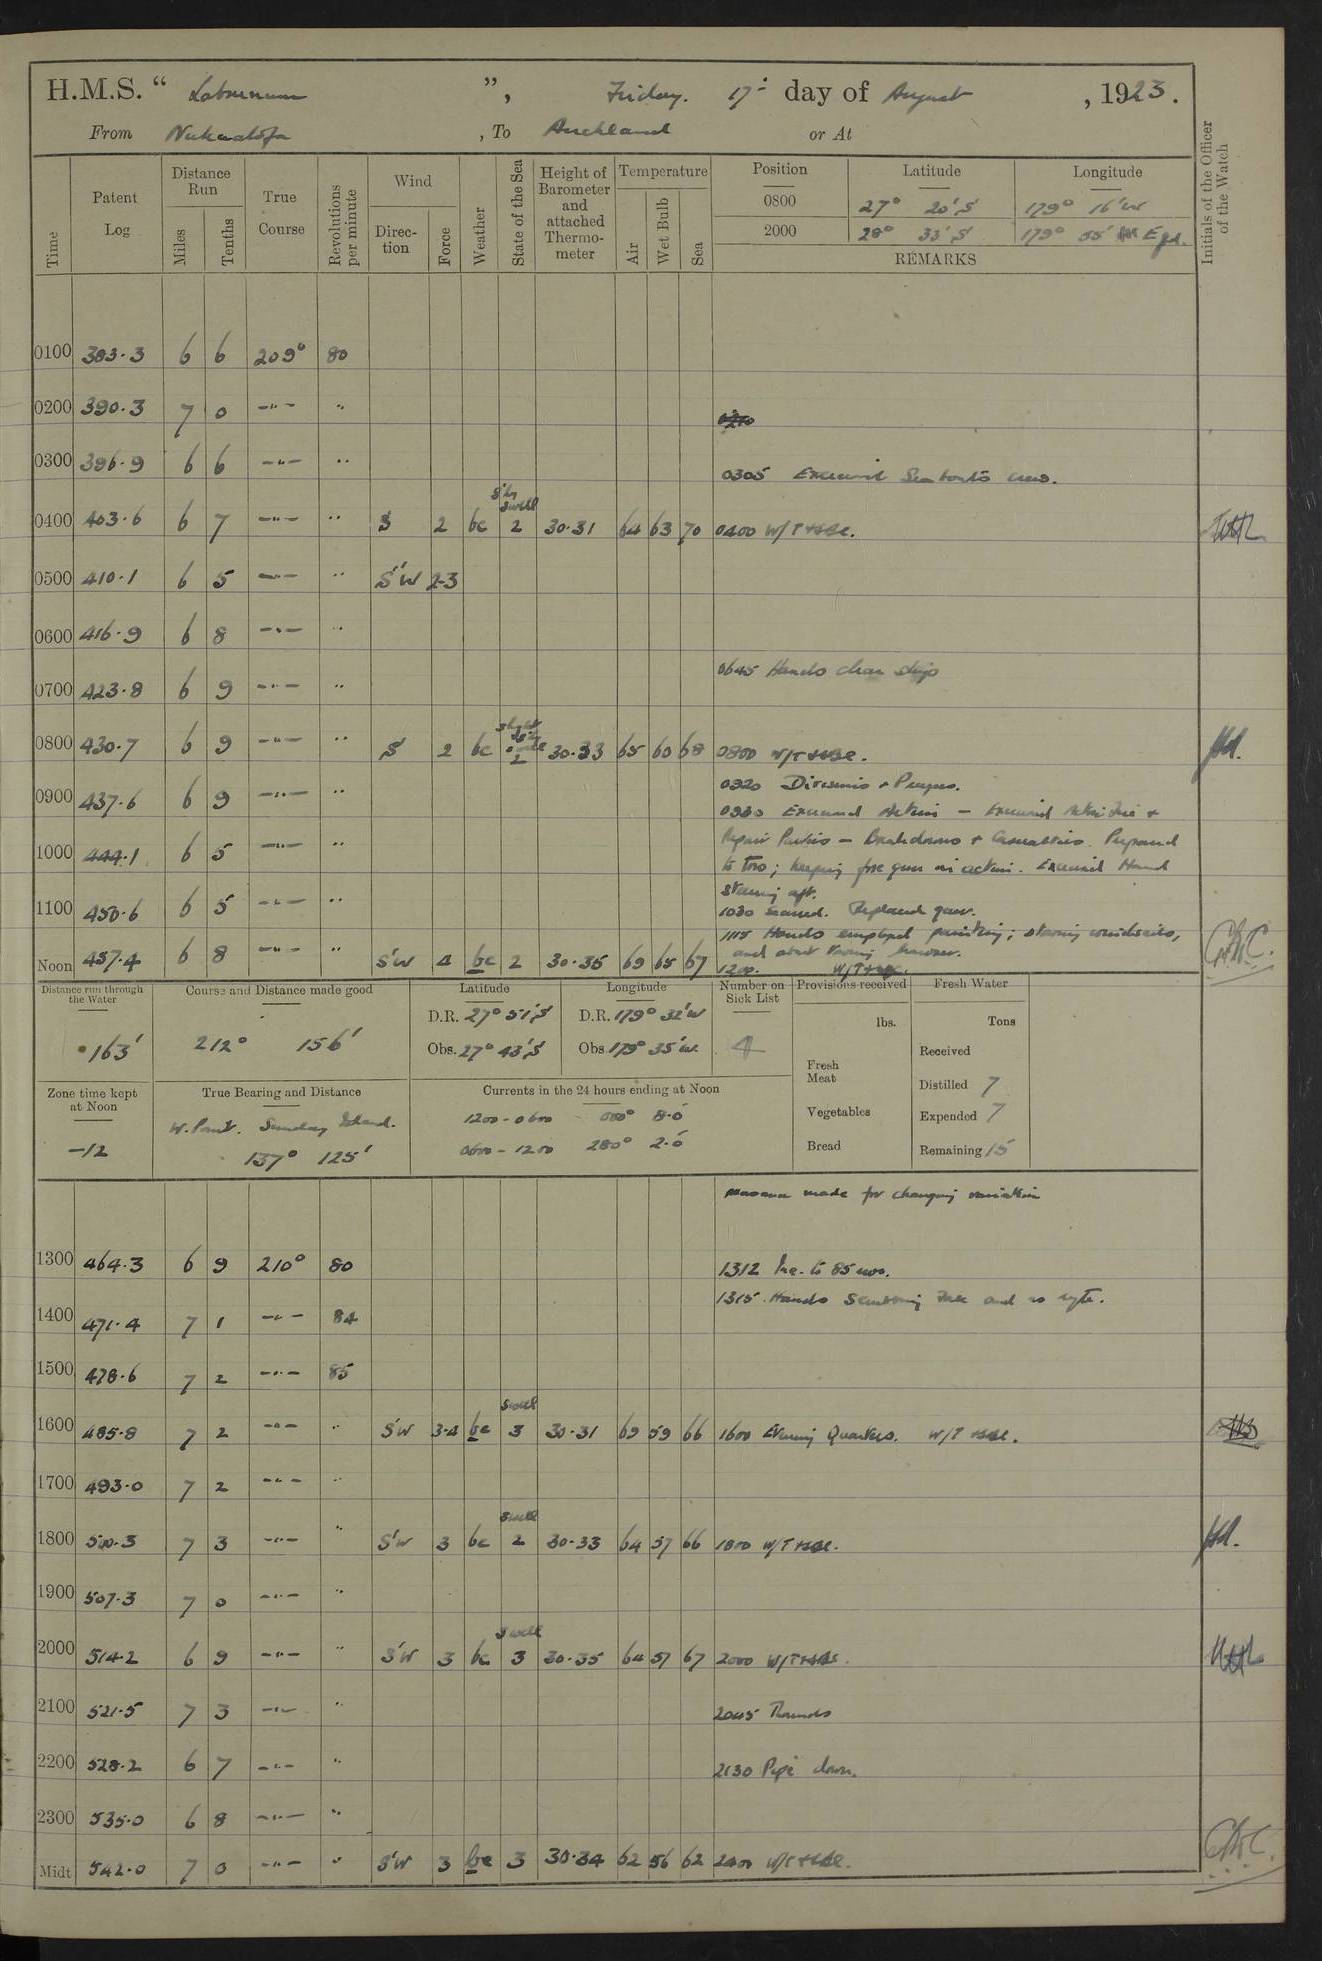 H.M.S. “ Laburnum ”, Friday. 17th day of August , 1923.
From Nukualofa , To Auckland or At
Time Patent Log Distance Run Miles Tenths True Course Revolutions per minute Wind Direction Force Weather State of the Sea Height of Barometer and attached Thermometer Temperature Air Wet Bulb Sea Position Latitude Longitude Initials of the Officer of the Watch
0800 27° 20' S 179° 16' W
2000 28° 33' S 179° 55' E
REMARKS
0100 383.3 6 6 209° 80
0200 390.3 7 0 –"– "
0300 396.9 6 6 –"– "
0305 Exercised Seaboat's crew.
0400 403.6 6 7 –"– " S 2 bc Swell 2 30.31 64 63 70 0400 W/T
0500 410.1 6 5 –"– " S'W 2-3
0600 416.9 6 8 –"– "
0645 Hands clean ship
0700 423.8 6 9 –"– "
0800 430.7 6 9 –"– " S 2 bc 2 30.33 65 60 68 0800 W/T
0920 Divisions + Prayers.
0900 437.6 6 9 –"– "
0930 Exercised Action – Exercised
Repair Parties – Breakdowns + Casualties. Prepared
1000 444.1 6 5 –"– "
to tow; keeping fore gun in action. Exercised Hand
steering aft.
1100 450.6 6 5 –"– "
1030 Secured. Replaced gear.
1115 Hands employed painting;
Noon 457.4 6 8 –"– " S'W 4 bc 2 30.35 69 65 67 1200. W/T
Distance run through the Water Course and Distance made good Latitude Longitude Number on Sick List Provisions received Fresh Water
163' 212° 156' D.R. 27° 51' S D.R. 179° 32' W
Obs. 27° 43' S Obs. 179° 35' W. 4
lbs. Tons
Fresh Meat Received
Zone time kept at Noon True Bearing and Distance Currents in the 24 hours ending at Noon Distilled 7
W. Point. Sunday Island. 1200-0600 8.0 Vegetables Expended 7
-12 137° 125' 0600-1200 280° 2.0 Bread Remaining 15
made for changing variation
1300 464.3 6 9 210° 80 1312 Inc. to 85 revs.
1315. Hands
1400 471.4 7 1 –"– 84
1500 478.6 7 2 –"– 85
1600 485.8 7 2 –"– " S'W 3-4 bc Swell 3 30.31 69 59 66 1600 Evening Quarters. W/T
1700 493.0 7 2 –"– "
1800 500.3 7 3 –"– " S'W 3 bc Swell 2 30.33 64 57 66 1800 W/T
1900 507.3 7 0 –"– "
2000 514.2 6 9 –"– " S'W 3 bc Swell 3 30.35 64 57 67 2000 W/T
2100 521.5 7 3 –"– " 2045 Rounds
2200 528.2 6 7 –"– " 2130 Pipe down.
2300 535.0 6 8 –"– "
Midt 542.0 7 0 –"– " S'W 3 bc 3 30.34 62 56 62 2400 W/T